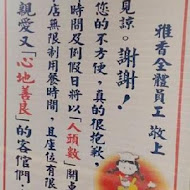 親愛又「心地善良」的客倌們：
店無限制用餐時間，且座位有限
時間及例假日將以「人頭數」開
您的不方便，真的很抱歉，
見諒。謝謝！
雅香全體員工 敬上